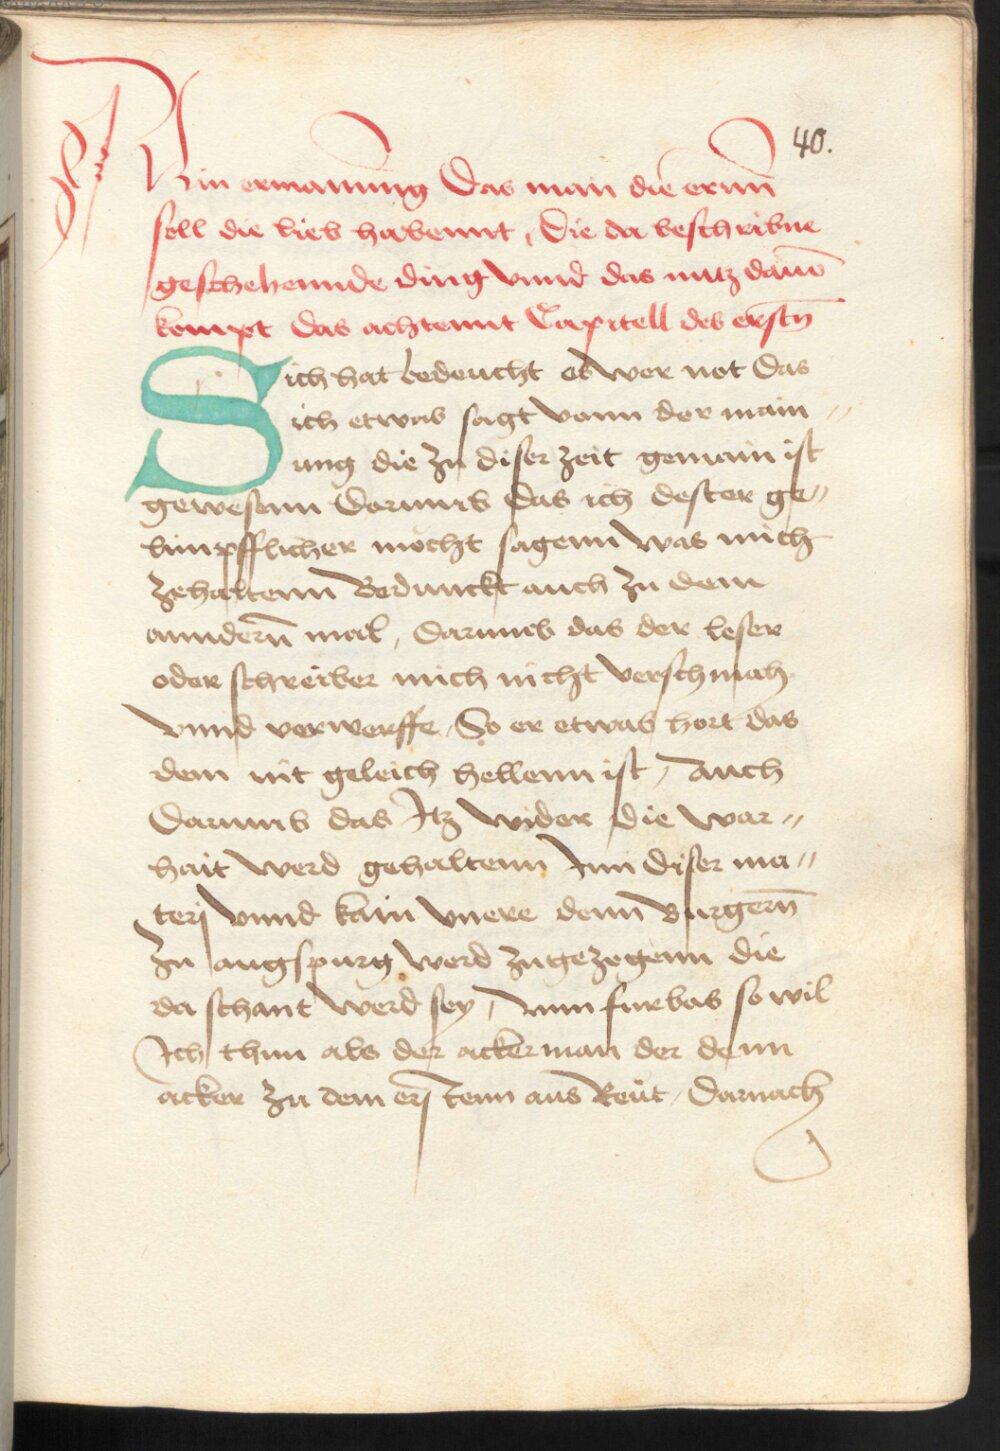 40.
Ein ermanung Das man die erenn
soll die lieb habennt, Die da beschribne
geschehennde ding vnnd das nutz dauō
kompt das achtennt Capitell des erstn̄
Sich hat bedeucht es wer not Das
ich etwas sagt vonn der main〃
ung die zu diser zeit gemain ist
gewesenn Darumb das ich dester ge〃
limpfflicher mocht sagenn was mich
zehaltenn Bedunckt auch zu dem
anndern̄ mal, Darumb das der leser
oder schreiber mich nicht verschmah
vnnd verwerffe, So er etwas hort das
dem nit geleich hellenn ist, Auch
Darumb das Itz wider die war〃
hait werd gehaltenn Inn diser ma〃
terj vnnd kain vnere denn Burgern̄
zu augspurg werd zugezogenn die
da schant werd sey, Nun furbas so wil
Ich thun als der ackerman der denn
acker zu dem erstenn aus Reut, Darnach